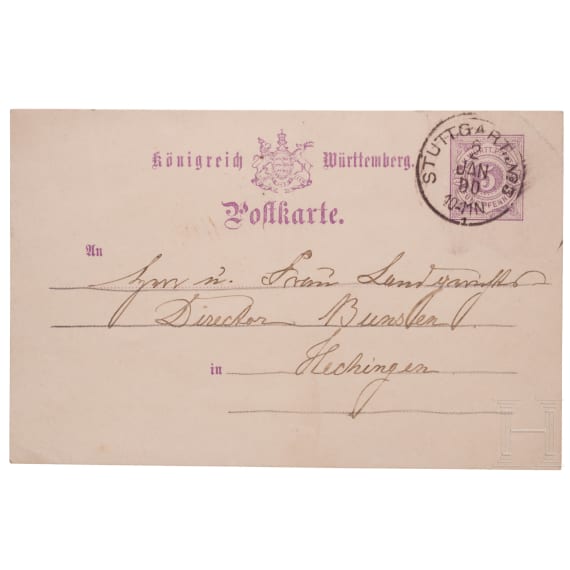 Königreich Württemberg.
Postkarte.
STUTTGART. Nº5
2
JAN
90
10-11N
1
5
An Herrn u. Frau Landgerichts
Director Bunsen
in Hechingen
H